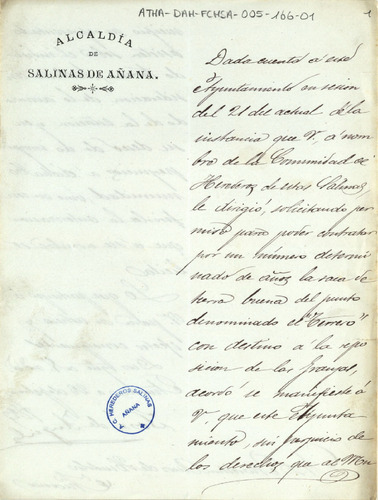 ATHA-DAH-FCHSA-005-166-01
1
ALCALDÍA
DE
SALINAS DE AÑANA.
Dada cuenta á este
Ayuntamiento en sesion
del 21 del actual de la
instancia que V. á nom
bre de la Comunidad de
Herederos de estas Salinas
le dirigió, solicitando per
miso para poder contratar
por un número determi
nado de años la saca de
tierra buena del punto
denominado el "Terrero"
con destino a la repo
sicion de las granjas,
acordó se manifieste á
V. que este Ayunta
miento, sin perjuicio de
los derechos que al Mu
A.C. HEREDEROS SALINAS
AÑANA